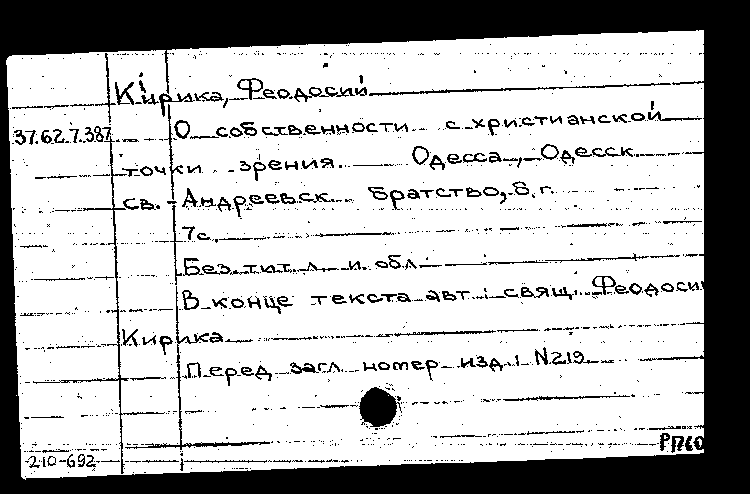 Кирика, Феодосий
37.62.7.387 О собственности с христианской
точки зрения. Одесса, Одесск.
св.-Андреевск. братство, б. г.
7с.
Без тит. л. и обл.
В конце текста авт.: свящ. Феодосий
Кирика.
Перед загл. номер изд.: N219.
210-692